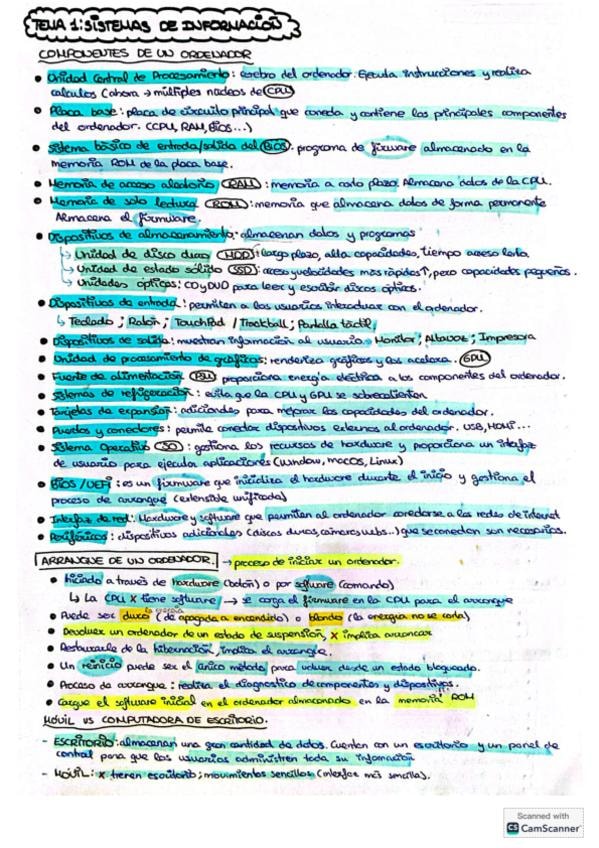 TEMA 1: SISTEMAS DE INFORMACIÓN
COMPONENTES DE UN ORDENADOR
• Unidad Central de Procesamiento: cerebro del ordenador. Ejecuta instrucciones y realiza
calculos (ahora → múltiples núcleos de CPU)
• Placa base: placa de circuito principal que conecta y contiene las principales componentes
del ordenador. (CPU, RAM, BIOS...)
• Sistema básico de entrada/salida del BIOS: programa de firware almacenado en la
memoria ROM de la placa base.
• Memoria de acceso aleatorio RAM: memoria a corto plazo. Almacena datos de la CPU.
• Memoria de solo lectura ROM: memoria que almacena datos de forma permanente
Almacena el firmware.
• Dispositivos de almacenamiento: almacenan datos y programas
↳ Unidad de disco duro HDD: largo plazo, alta capacidades, tiempo acceso lento.
↳ Unidad de estado sólido SSD: acceso y velocidades más rápidos↑, pero capacidades pequeñas.
↳ Unidades ópticas: CD y DVD para leer y escribir discos opticos.
• Dispositivos de entrada: permiten a los usuarios interactuar con el ordenador.
↳ Teclado; Ratón; TouchPad / Trackball; Pantalla táctil,
• Dispositivos de salida: muestran información al usuario. Monitor; Altavoz; Impresora
• Unidad de procesamiento de gráficos: renderiza gráficos y los acelera. GPU
• Fuente de alimentación PSU proporciona energía eléctrica a los componentes del ordenador.
• Sistemas de refrigeración: evita que la CPU y GPU se sobrecalienten
• Tarjetas de expansión: adicionales para mejorar las capacidades del ordenador.
• Puertos y conectores: permite conectar dispositivos externos al ordenador. USB, HDMI...
• Sistema Operativo SO: gestiona los recursos de hardware y proporciona un interfaz
de usuario para ejecutar aplicaciones (Window, macOS, Linux)
• BIOS / UEFI: es un firmware que inicializa el hardware durante el inicio y gestiona el
proceso de arranque (extensible unificada)
• Interfaz de red: Hardware y software que permiten al ordenador conectarse a las redes de internet
• Periféricos: dispositivos adicionales (discos duros, cámaras webs...) que se conectan son necesarios.
ARRANQUE DE UN ORDENADOR. → proceso de iniciar un ordenador.
• Iniciado a través de hardware (botón) o por software (comando)
↳ La CPU X tiene software → se carga el firmware en la CPU para el arranque
• Puede ser duro (la energía de apagada a encendido) o blando (la energía no se corta)
• Devolver un ordenador de un estado de suspensión, X implica arrancar
• Restaurarle de la hibernación, implica el arranque.
• Un reinicio puede ser el único método para volver desde un estado bloqueado.
• Proceso de arranque: realiza el diagnostico de componentes y dispositivos.
• Cargue el software inicial en el ordenador almacenado en la memoria ROM
MÓVIL VS COMPUTADORA DE ESCRITORIO.
- ESCRITORIO: almacenan una gran cantidad de datos. Cuentan con un escritorio y un panel de
control para que los usuarios administren toda su información
- MÓVIL: X tienen escritorio; movimientos sencillos (interfaz más sencilla).
Scanned with
CS CamScanner